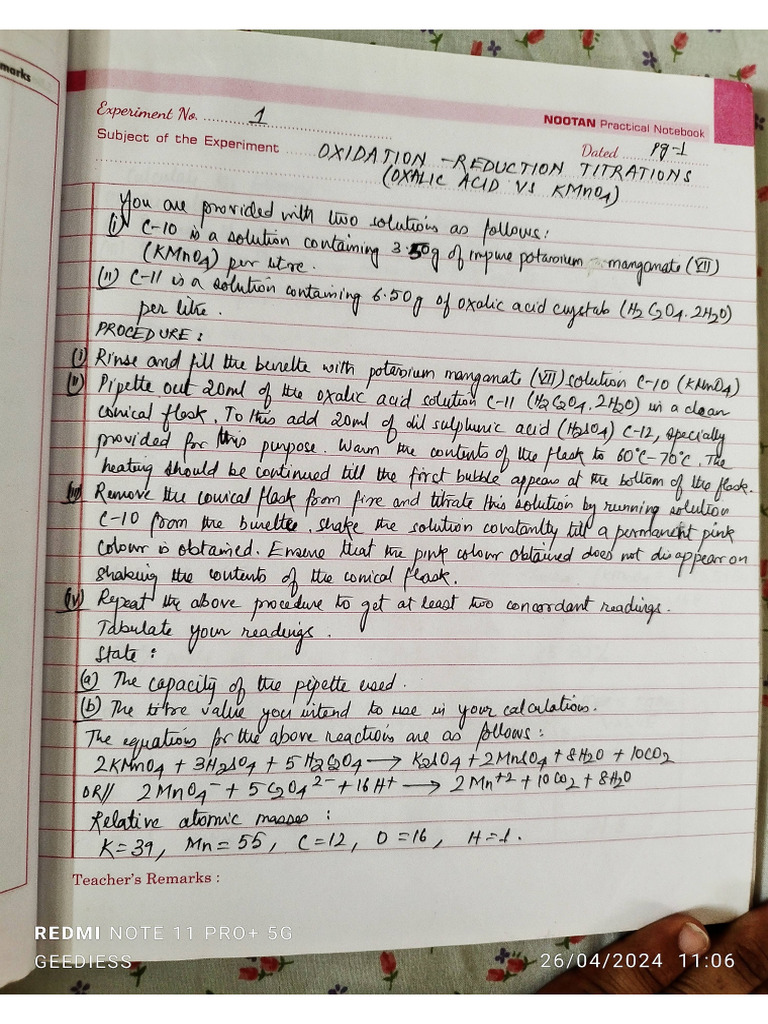 marks
Experiment No. 1
NOOTAN Practical Notebook
Subject of the Experiment OXIDATION - REDUCTION TITRATIONS
Dated Pg-1
(OXALIC ACID VS KMnO4)
You are provided with two solutions as follows:
(i) C-10 is a solution containing 3.50g of impure potassium manganate (VII)
(KMnO4) per litre.
(ii) C-11 is a solution containing 6.50g of oxalic acid crystals (H2C2O4.2H2O)
per litre.
PROCEDURE:
(i) Rinse and fill the burette with potassium manganate (VII) solution C-10 (KMnO4)
(ii) Pipette out 20ml of the oxalic acid solution C-11 (H2C2O4.2H2O) in a clean
conical flask. To this add 20ml of dil sulphuric acid (H2SO4) C-12, specially
provided for this purpose. Warm the contents of the flask to 60°C-70°C. The
heating should be continued till the first bubble appears at the bottom of the flask.
(iii) Remove the conical flask from fire and titrate this solution by running solution
C-10 from the burette. Shake the solution constantly till a permanent pink
colour is obtained. Ensure that the pink colour obtained does not disappear on
shaking the contents of the conical flask.
(iv) Repeat the above procedure to get at least two concordant readings.
Tabulate your readings.
State:
(a) The capacity of the pipette used.
(b) The titre value you intend to use in your calculations.
The equations for the above reactions are as follows:
2KMnO4 + 3H2SO4 + 5H2C2O4 → K2SO4 + 2MnSO4 + 8H2O + 10CO2
OR// 2MnO4- + 5C2O4 2- + 16H+ → 2Mn+2 + 10CO2 + 8H2O
Relative atomic masses:
K=39, Mn=55, C=12, O=16, H=1.
Teacher's Remarks :
REDMI NOTE 11 PRO+ 5G
GEEDIESS
26/04/2024 11:06